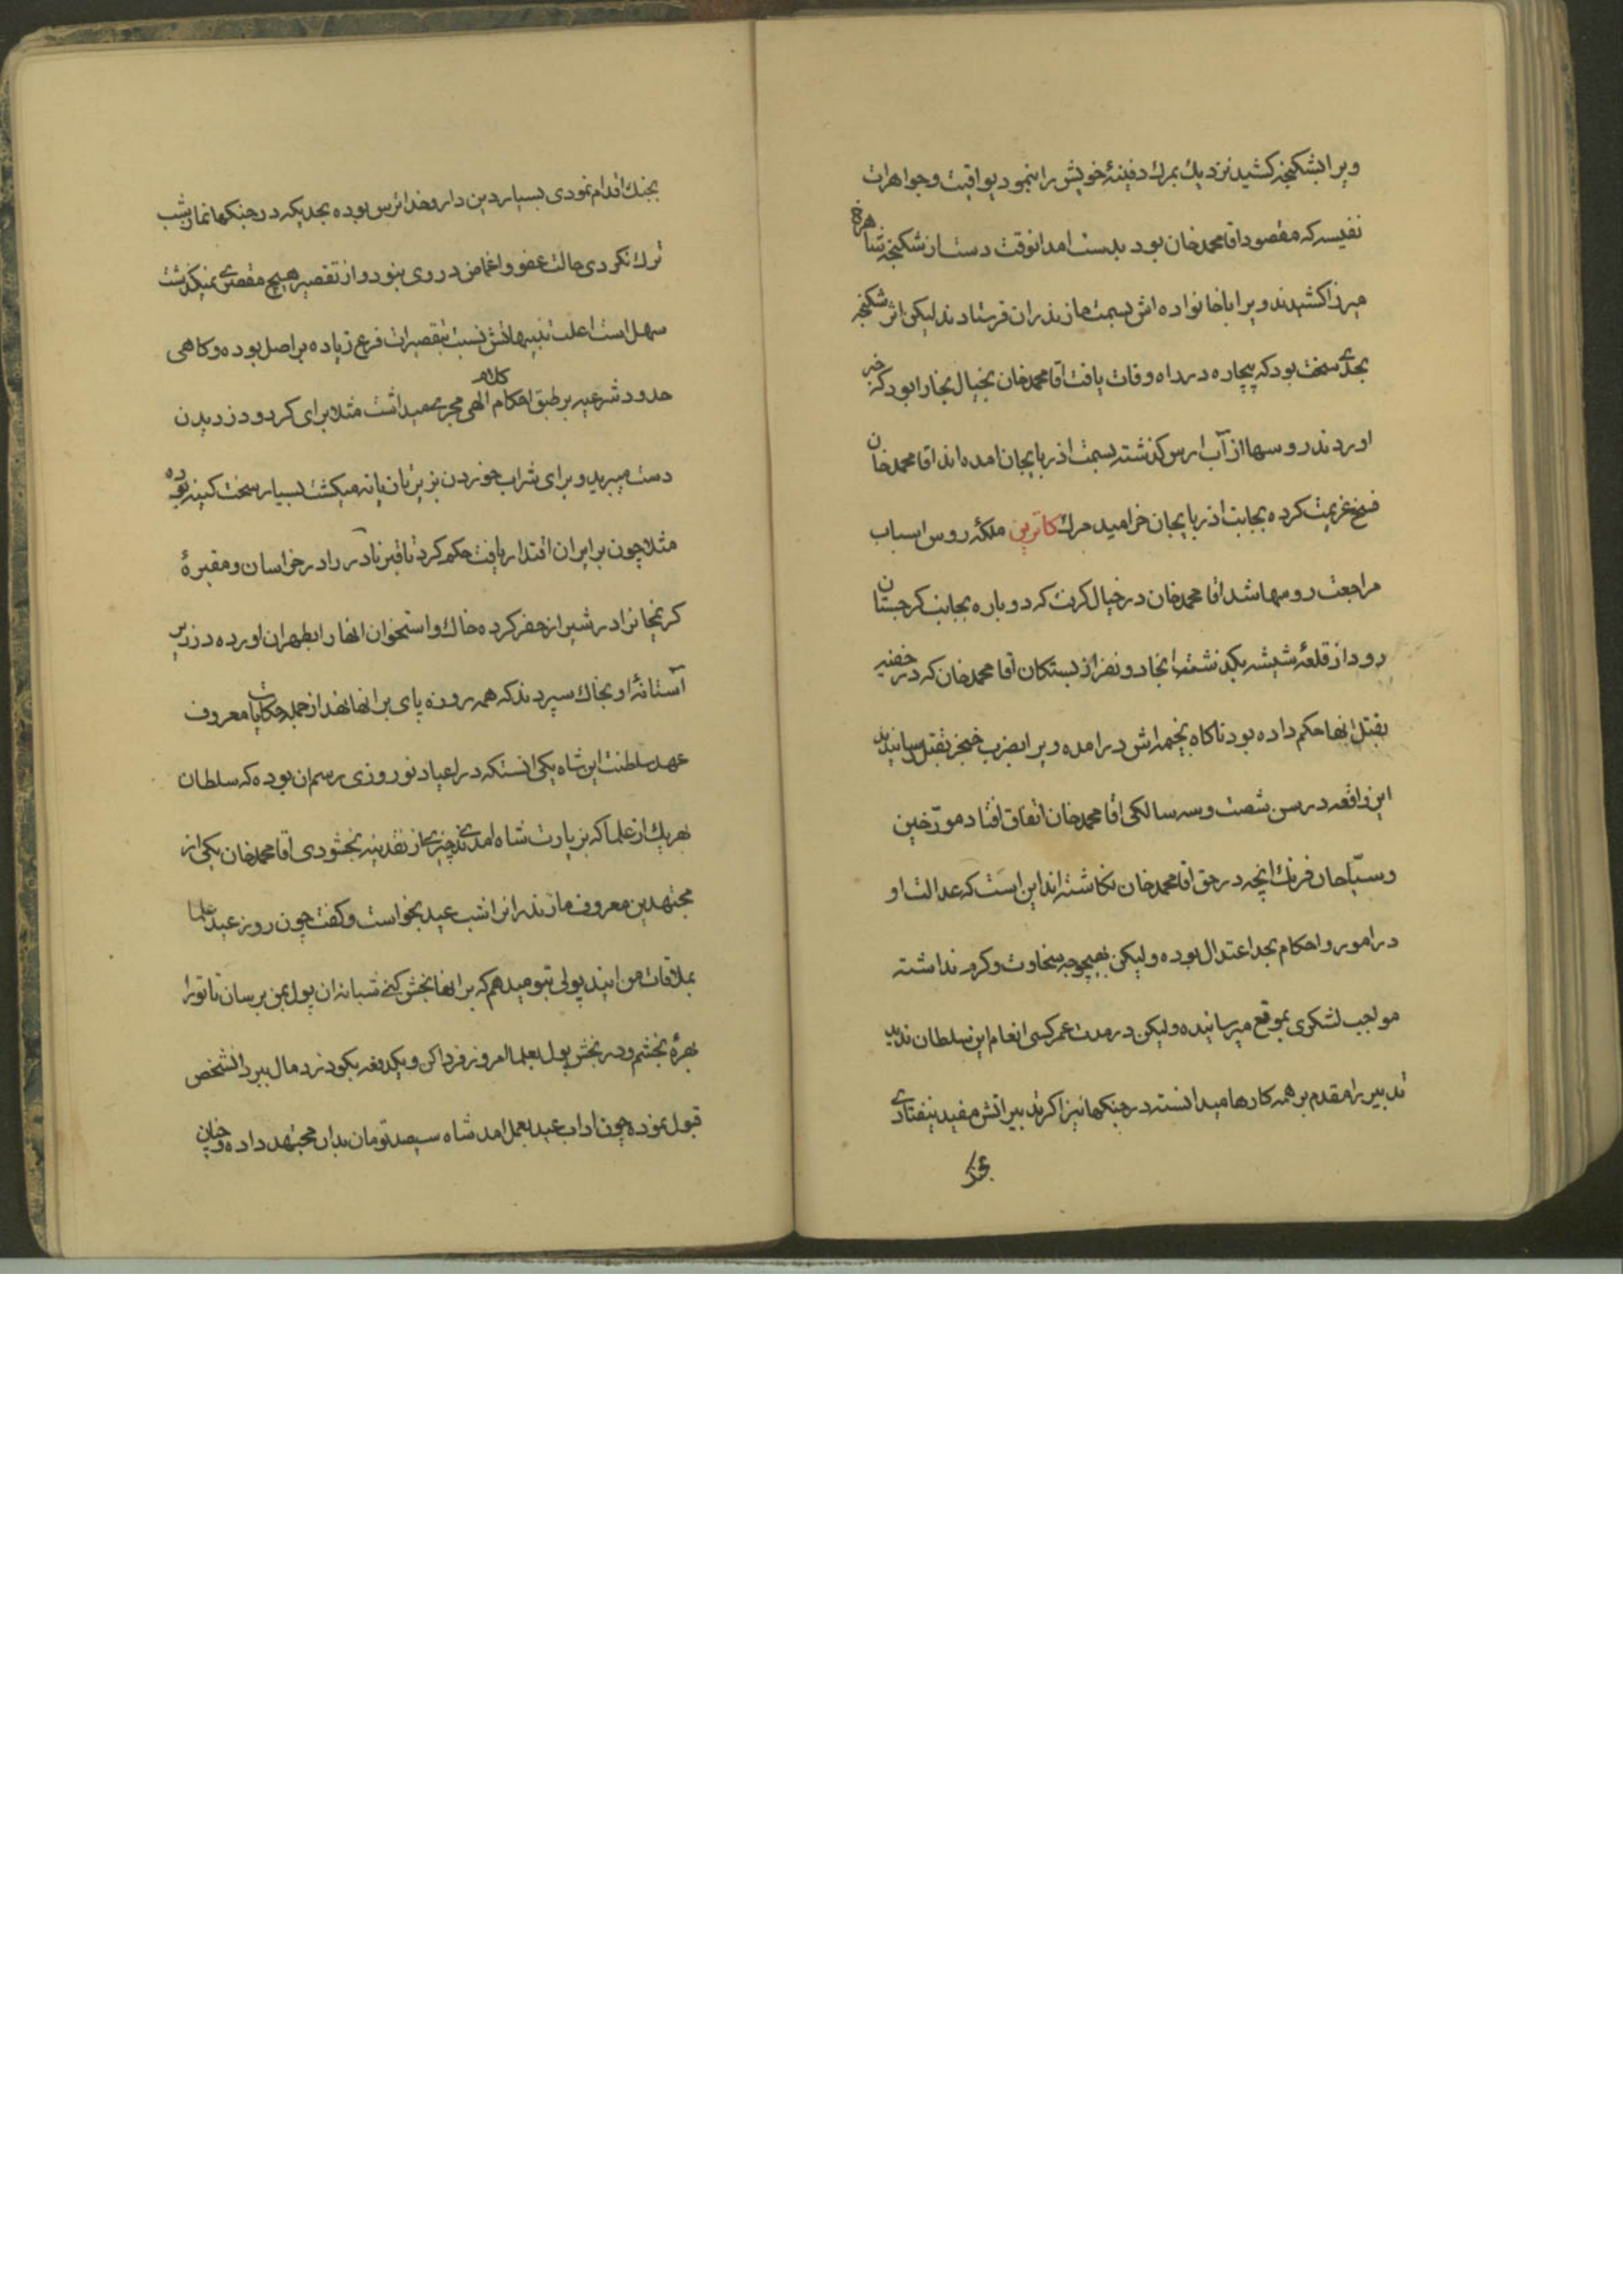 ویرا بشکنجه کشید نزدیك بمرك دفینهٔ خویش را بنمود یواقیت و جواهرات
نفیسه که مقصود اقا محمدخان بود بدست امد انوقت دست از شکنجه شاهرخ
میرزا کشیدند ویرا با خانواده اش بسمت مازندران فرستادند لیکن اثر شکنجه
بحدی سخت بود که بیچاره در راه وفات یافت آقا محمدخان بخیال بخارا بود که خبر
اوردند روسها از آب ارس کذشته بسمت اذربایجان امده اند اقا محمدخان
فسخ عزیمت کرده بجانب اذربایجان خرامید مرك کاترین ملکهٔ روس اسباب
مراجعت روسها شد اقا محمدخان در خیال کرت که دوباره بجانب کرجستان
رود از قلعهٔ شیشه بکذشت انجا دو نفر از بستکان آقا محمدخان که در خفیه
بقتل انها حکم داده بود ناکاه بخیمه اش درامده ویرا بضرب خنجر بقتل رسانیدند
این واقعه در سن شصت و سه سالکی اقا محمدخان اتفاق افتاد مورّخین
و سیّاحان فرنك انچه در حق اقا محمدخان نکاشته اند این است که عدالت او
در امور و احکام بحد اعتدال بوده ولیکن بهیچوجه سخاوت و کرم نداشته
مواجب لشکری بموقع میرسانیده ولیکن در مدت عمر کسی انعام این سلطان ندید
تدبیر را مقدم بر همه کارها میدانسته در جنکها نیز اکر تدبیراتش مفید نیفتادی
بجنك
بجنك اقدام نمودی بسیار دین دار و خدا ترس بوده بحدیکه در جنکها نماز شب
ترك نکردی حالت عفو و اغماض در وی نبود و از تقصیر هیچ مقصری نمیکذشت
سهل است اغلب تنبیهاتش نسبت بتقصیرات فرع زیاده بر اصل بوده و کاهی
حدود شرعیه بر طبق احکام کلام الهی مجری میداشت مثلا برای کرد و دزدیدن
دست میبرید و برای شراب خوردن بزیر تازیانه میکشت بسیار سخت کینه بوده
مثلا چون بر ایران اقتدار یافت حکم کرد تا قبر نادر را در خراسان و مقبرهٔ
کریمخانرا در شیراز حفر کرده خاك و استخوان انها را بطهران اورده در زیر
آستانهٔ او بخاك سپردند که همه روزه پای بر انها نهد از جمله حکایات معروف
عهد سلطنت این شاه یکی انستکه در اعیاد نوروزی رسم ان بوده که سلطان
بهریك از علما که بزیارت شاه امدندی چیزی از نقدینه بخشودی آقا محمدخان یکی از
مجتهدین معروف مازندرانرا شب عید بخواست و کفت چون روز عید علما
بملاقات من ایند پولی بتو میدهم که بر انها بخش کنی شبانه ان پول بمن برسان تا ترا
بهرهٔ بخشم و در بخش پول بعلما امروز فردا کن و یکدفعه بکو دزد مال ببرد انشخص
قبول نموده چون اداب عید بعمل امد شاه سیصد تومان بدان مجتهد داده و چنان